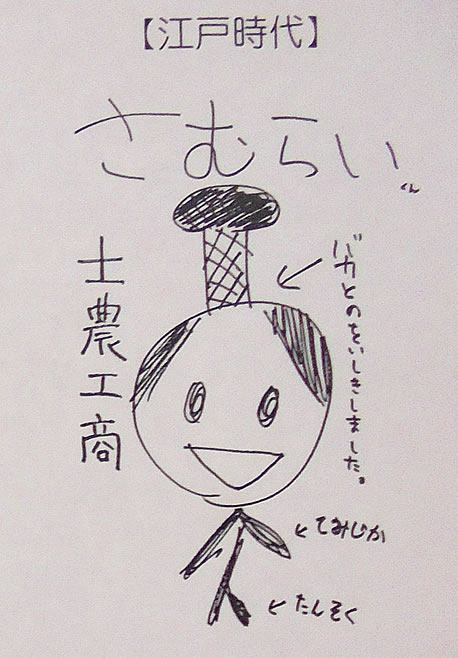 【江戸時代】
さむらいくん
士農工商
バカとのをいしきしました。
てみじか
たんそく